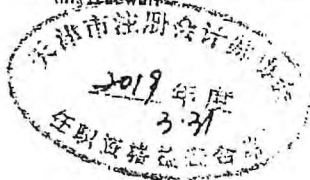 天津市注册会计师协会
2019 年度
3.31
任职资格检查合格